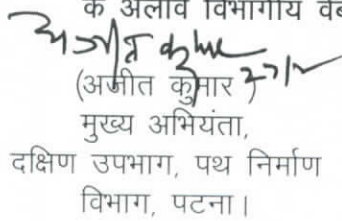 के अलावे विभागीय वेब
अजीत कुमार
(अजीत कुमार)
मुख्य अभियंता,
दक्षिण उपभाग, पथ निर्माण
विभाग, पटना।